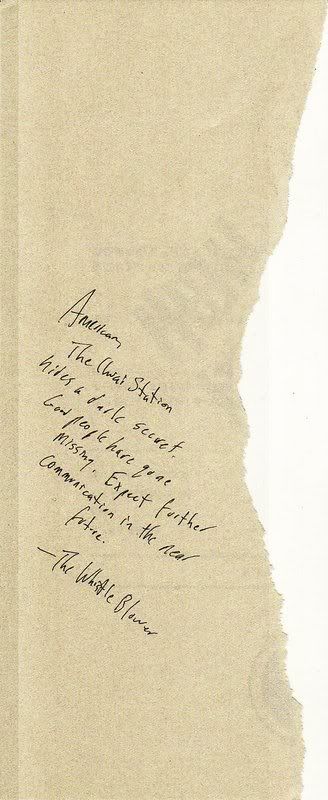 American,
The Chwai Station
hides a dark secret.
Good people have gone
missing. Expect further
communication in the near
future.
—The Whistle Blower